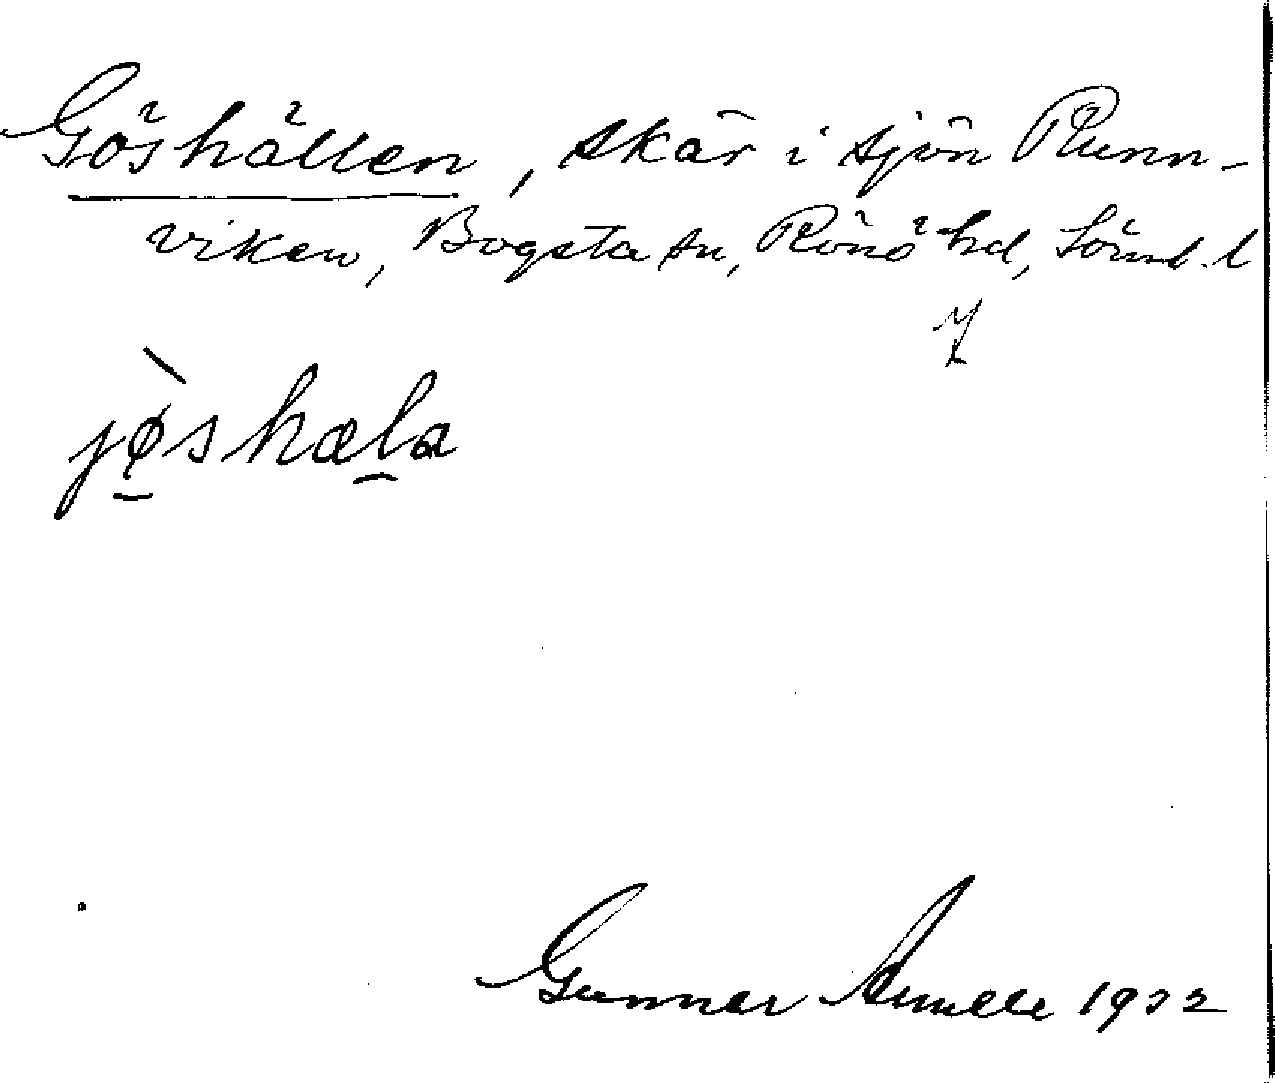 Göshällen, skär i sjön Runn-
viken, Bogsta sn, Rönö hd, Sörml. l
7
jøshæla
Gunnar 1932